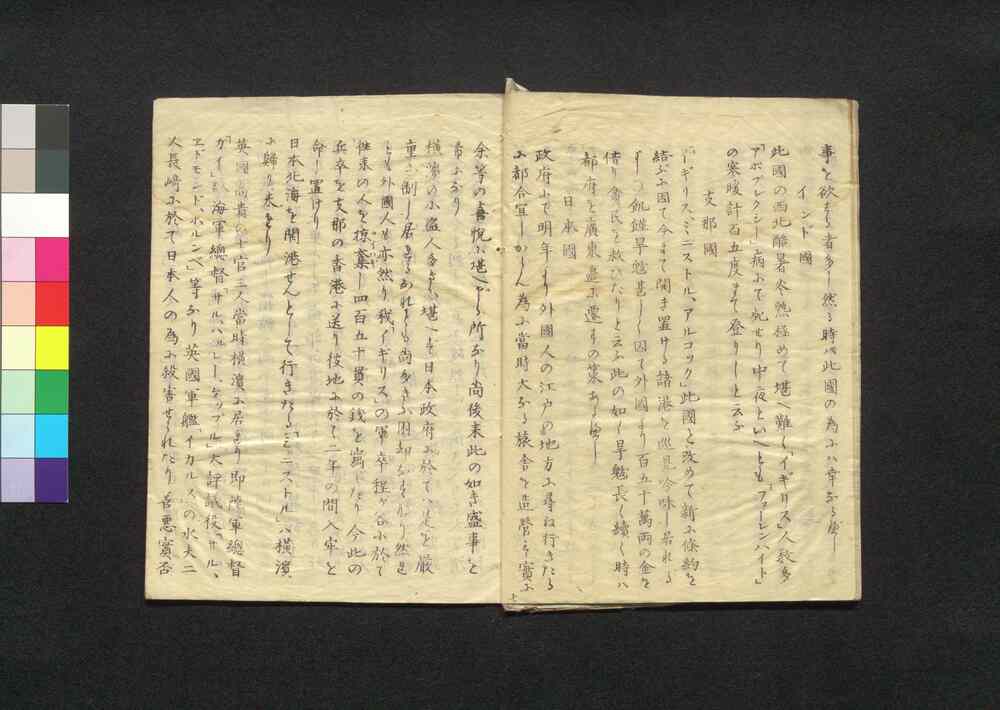 事を欲する者多し然る時ハ此國の為にハ幸なる可し
インド國
此國の西北酷暑炎熱極めて堪へ難く「イギリス」人数多
「アポプレクシー」病ふて死せり中夜といへとも「ファーレンハイト」
の寒暖計百五度まて登りしと云ふ
支那國
「イギリス、ミニストル、アルコック」此國と改めて新ふ條約を
結ふふ因て今まて開き置ける諸港を巡見吟味し居れる
よし飢饉旱魃甚しく因て外國より百五十萬両の金を
借り貧民を救ひたりと云ふ此の如く旱魃長く續く時ハ
都府を廣東邉ふ遷すの策ある可し
日本國
政府ふて明年より外國人の江戸の地方ふ尋ね行きたる
ふ都合宜しからん為ふ當時大なる旅舎を造營す實ふ
七
余等の喜悦ふ堪へる所なり尚後来此の如き盛事を
希ふなり
横濱の小盗人多きふ堪へす日本政府ふ於てハ是を嚴
重ふ制し居きるなれとも尚多きふ困却するなり然れ
とも外國人も亦然り我「イギリス」の軍卒程ヶ谷ふ於て
往来の人を掠奪し四百五十貫の銭を出したり今此の
兵卒を支那の香港ふ送り彼地ふ於て二年の間入牢を
命し置けり
日本北海を開港せんとして行きたる「ミニストル」ハ横濱
ふ歸り来れり
英國高貴の士官三人當時横濱ふ居れり即陸軍總督
海軍總督「サル、ハルレー、ケップル」大評議役「サル、
エドモンド、ホルンベ」等なり英國軍艦「イカルス」の水夫二
人長崎ふ於て日本人の為ふ殺害せられたり善悪實否